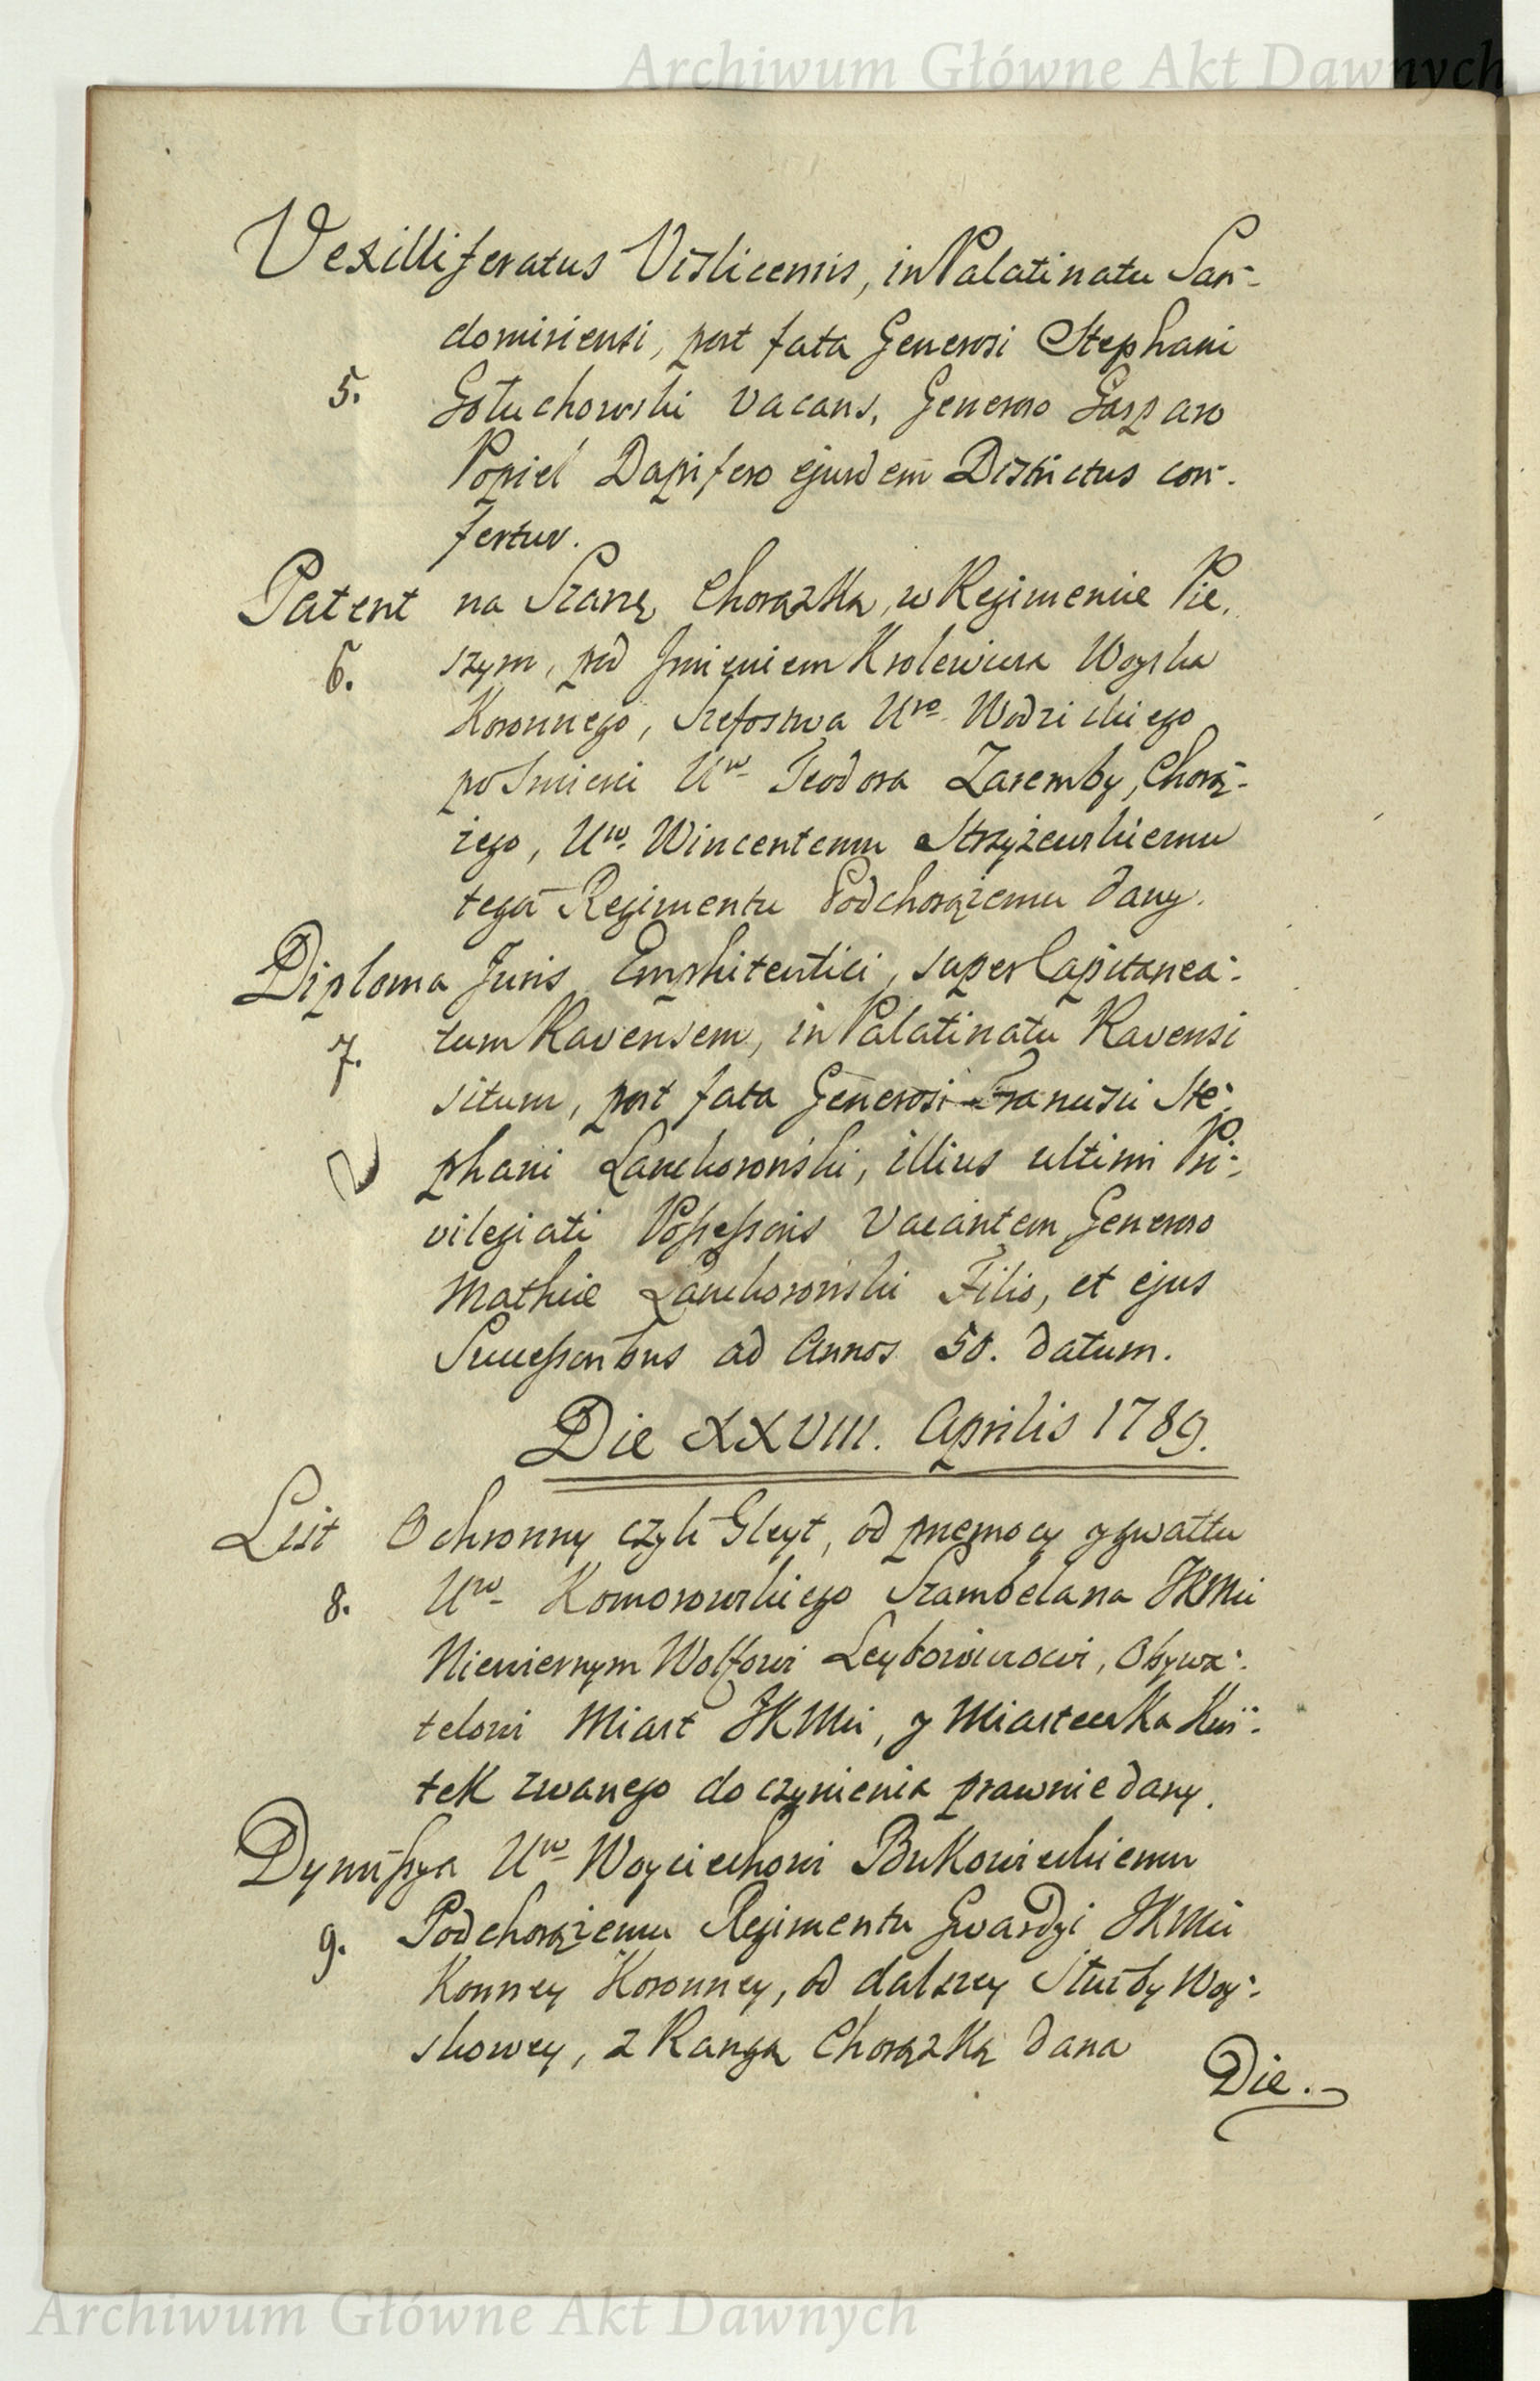 Archiwum Główne Akt Dawnych
Vexilliferatus Vislicensis, in Palatinatu San-
domiriensi, post fata Generosi Stephani
5. Gołuchowski vacans, Generoso Gasparo
Popiel Dapifero ejusdem Districtus con-
fertur.
Patent na Szarżą Chorązką, w Regimencie Pie-
6. szym, pod Jmieniem Krolewicza Woyska
Koronnego, Szefostwa Uro Wodzickiego
po Smierci Uro Teodora Zaremby, Chorą-
żego, Uro Wincentemu Strzyżewskiemu
tegoż Regimentu Podchorążemu dany.
Diploma Juris Emphiteutici, super Capitanea-
7. tum Ravensem, in Palatinatu Ravensi
situm, post fata Generosi Francisci Ste-
phani Lanckoroński, illius ultimi Pri-
vilegiati Possessoris vacantem Generoso
Mathiæ Lanckoroński Filio, et ejus
Successoribus ad Annos 50. datum.
Die XXVIII. Aprilis 1789.
List Ochronny czyli Gleyt, od przemocy y gwałtu
8. Uro Komorowskiego Szambelana JKMci
Niewiernym Wolfowi Leybowiczowi, Obywa-
telowi Miast JKMci, y Miasteczka
tek zwanego do czynienia prawnie dany.
Dymissya Uro Woyciechowi Bukowieckiemu
9. Podchorążemu Regimentu Gwardyi JKMci
Konney Koronney, od dalszey Służby Woy-
skowey, z Rangą Chorązką dana
Die.
Archiwum Główne Akt Dawnych